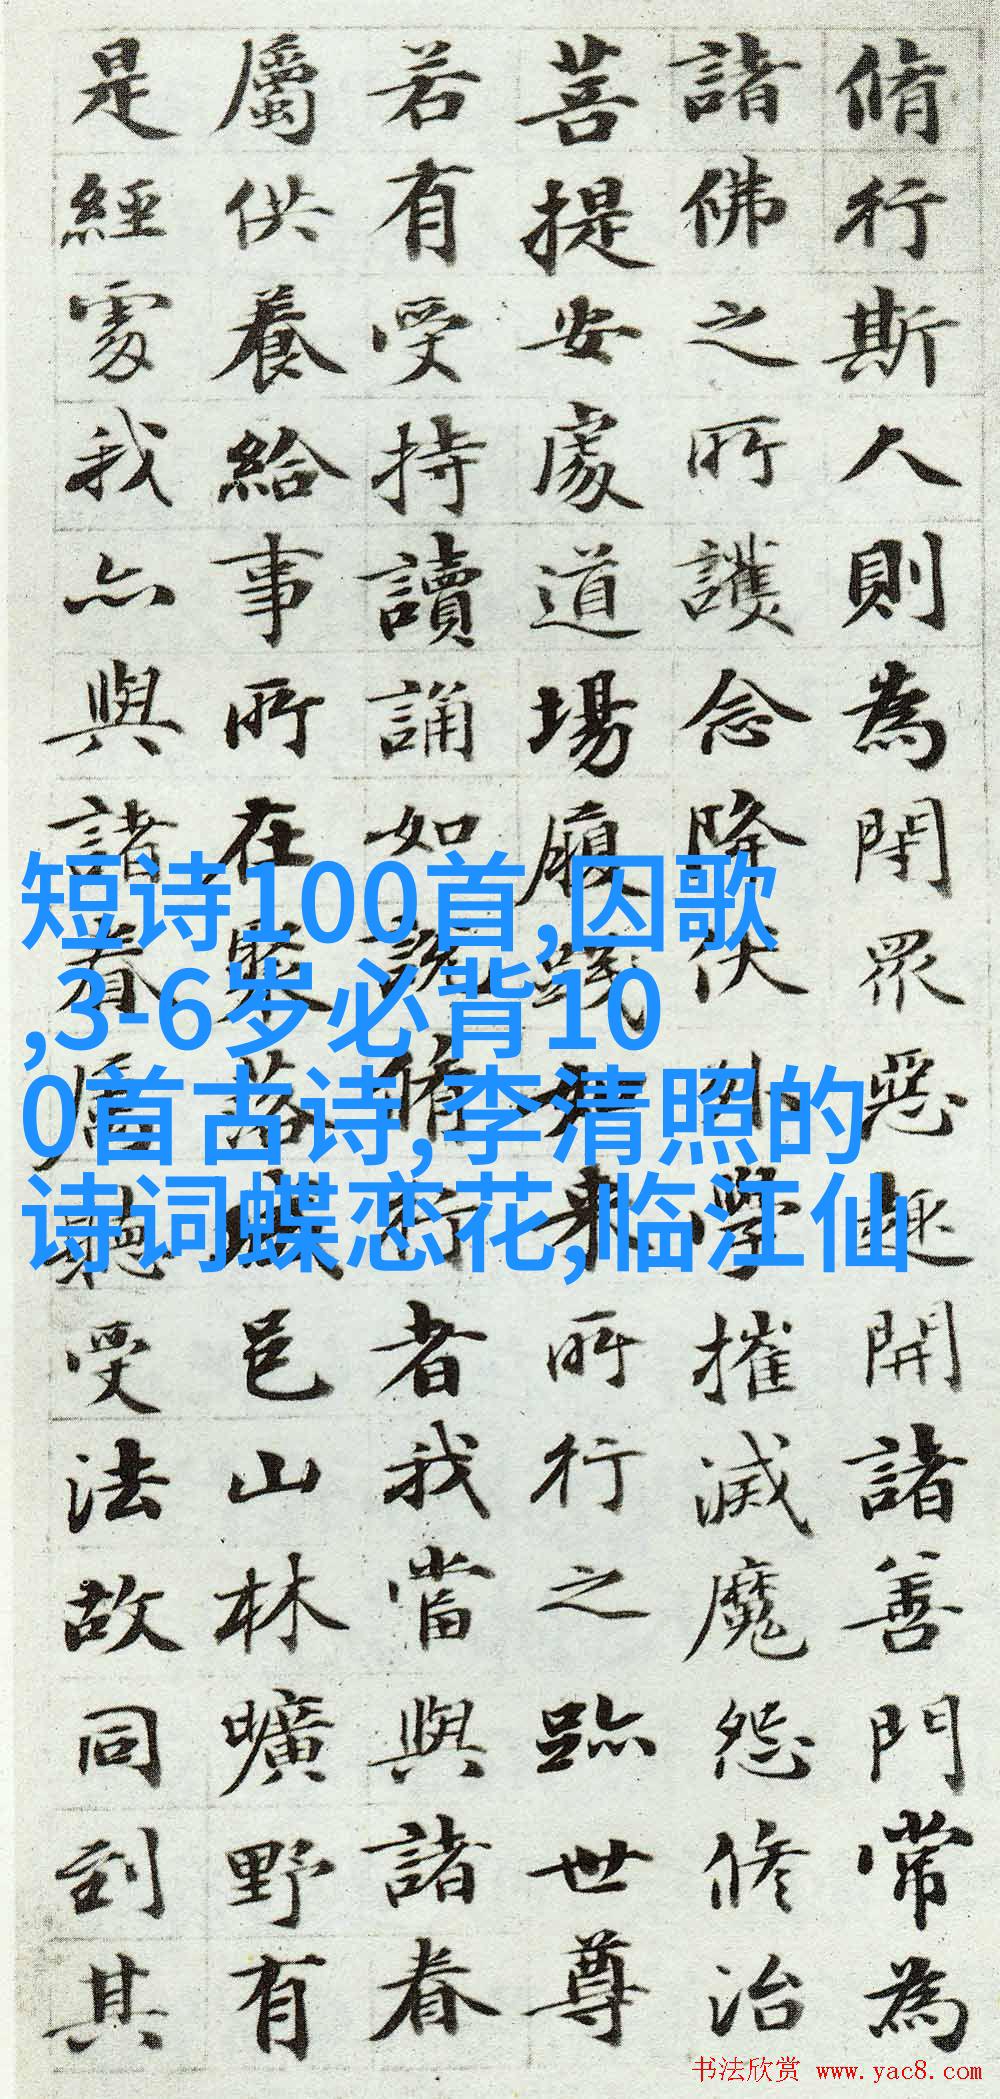 脩行斯人則為閇眾惡趣開諸善門常為
諸佛之所護念降伏外學摧滅魔怨修治
菩提安處道場履踐如來所行之跡世尊
若有受持讀誦如說脩行者我當與諸眷
屬供養給事所在聚落城邑山林曠野有
是經處我亦與諸眷屬聽受法故同到其
短诗100首,囚歌
,3-6岁必背10
0首古诗,李清照的
诗词蝶恋花,临江仙
书法欣赏 www.yac8.com